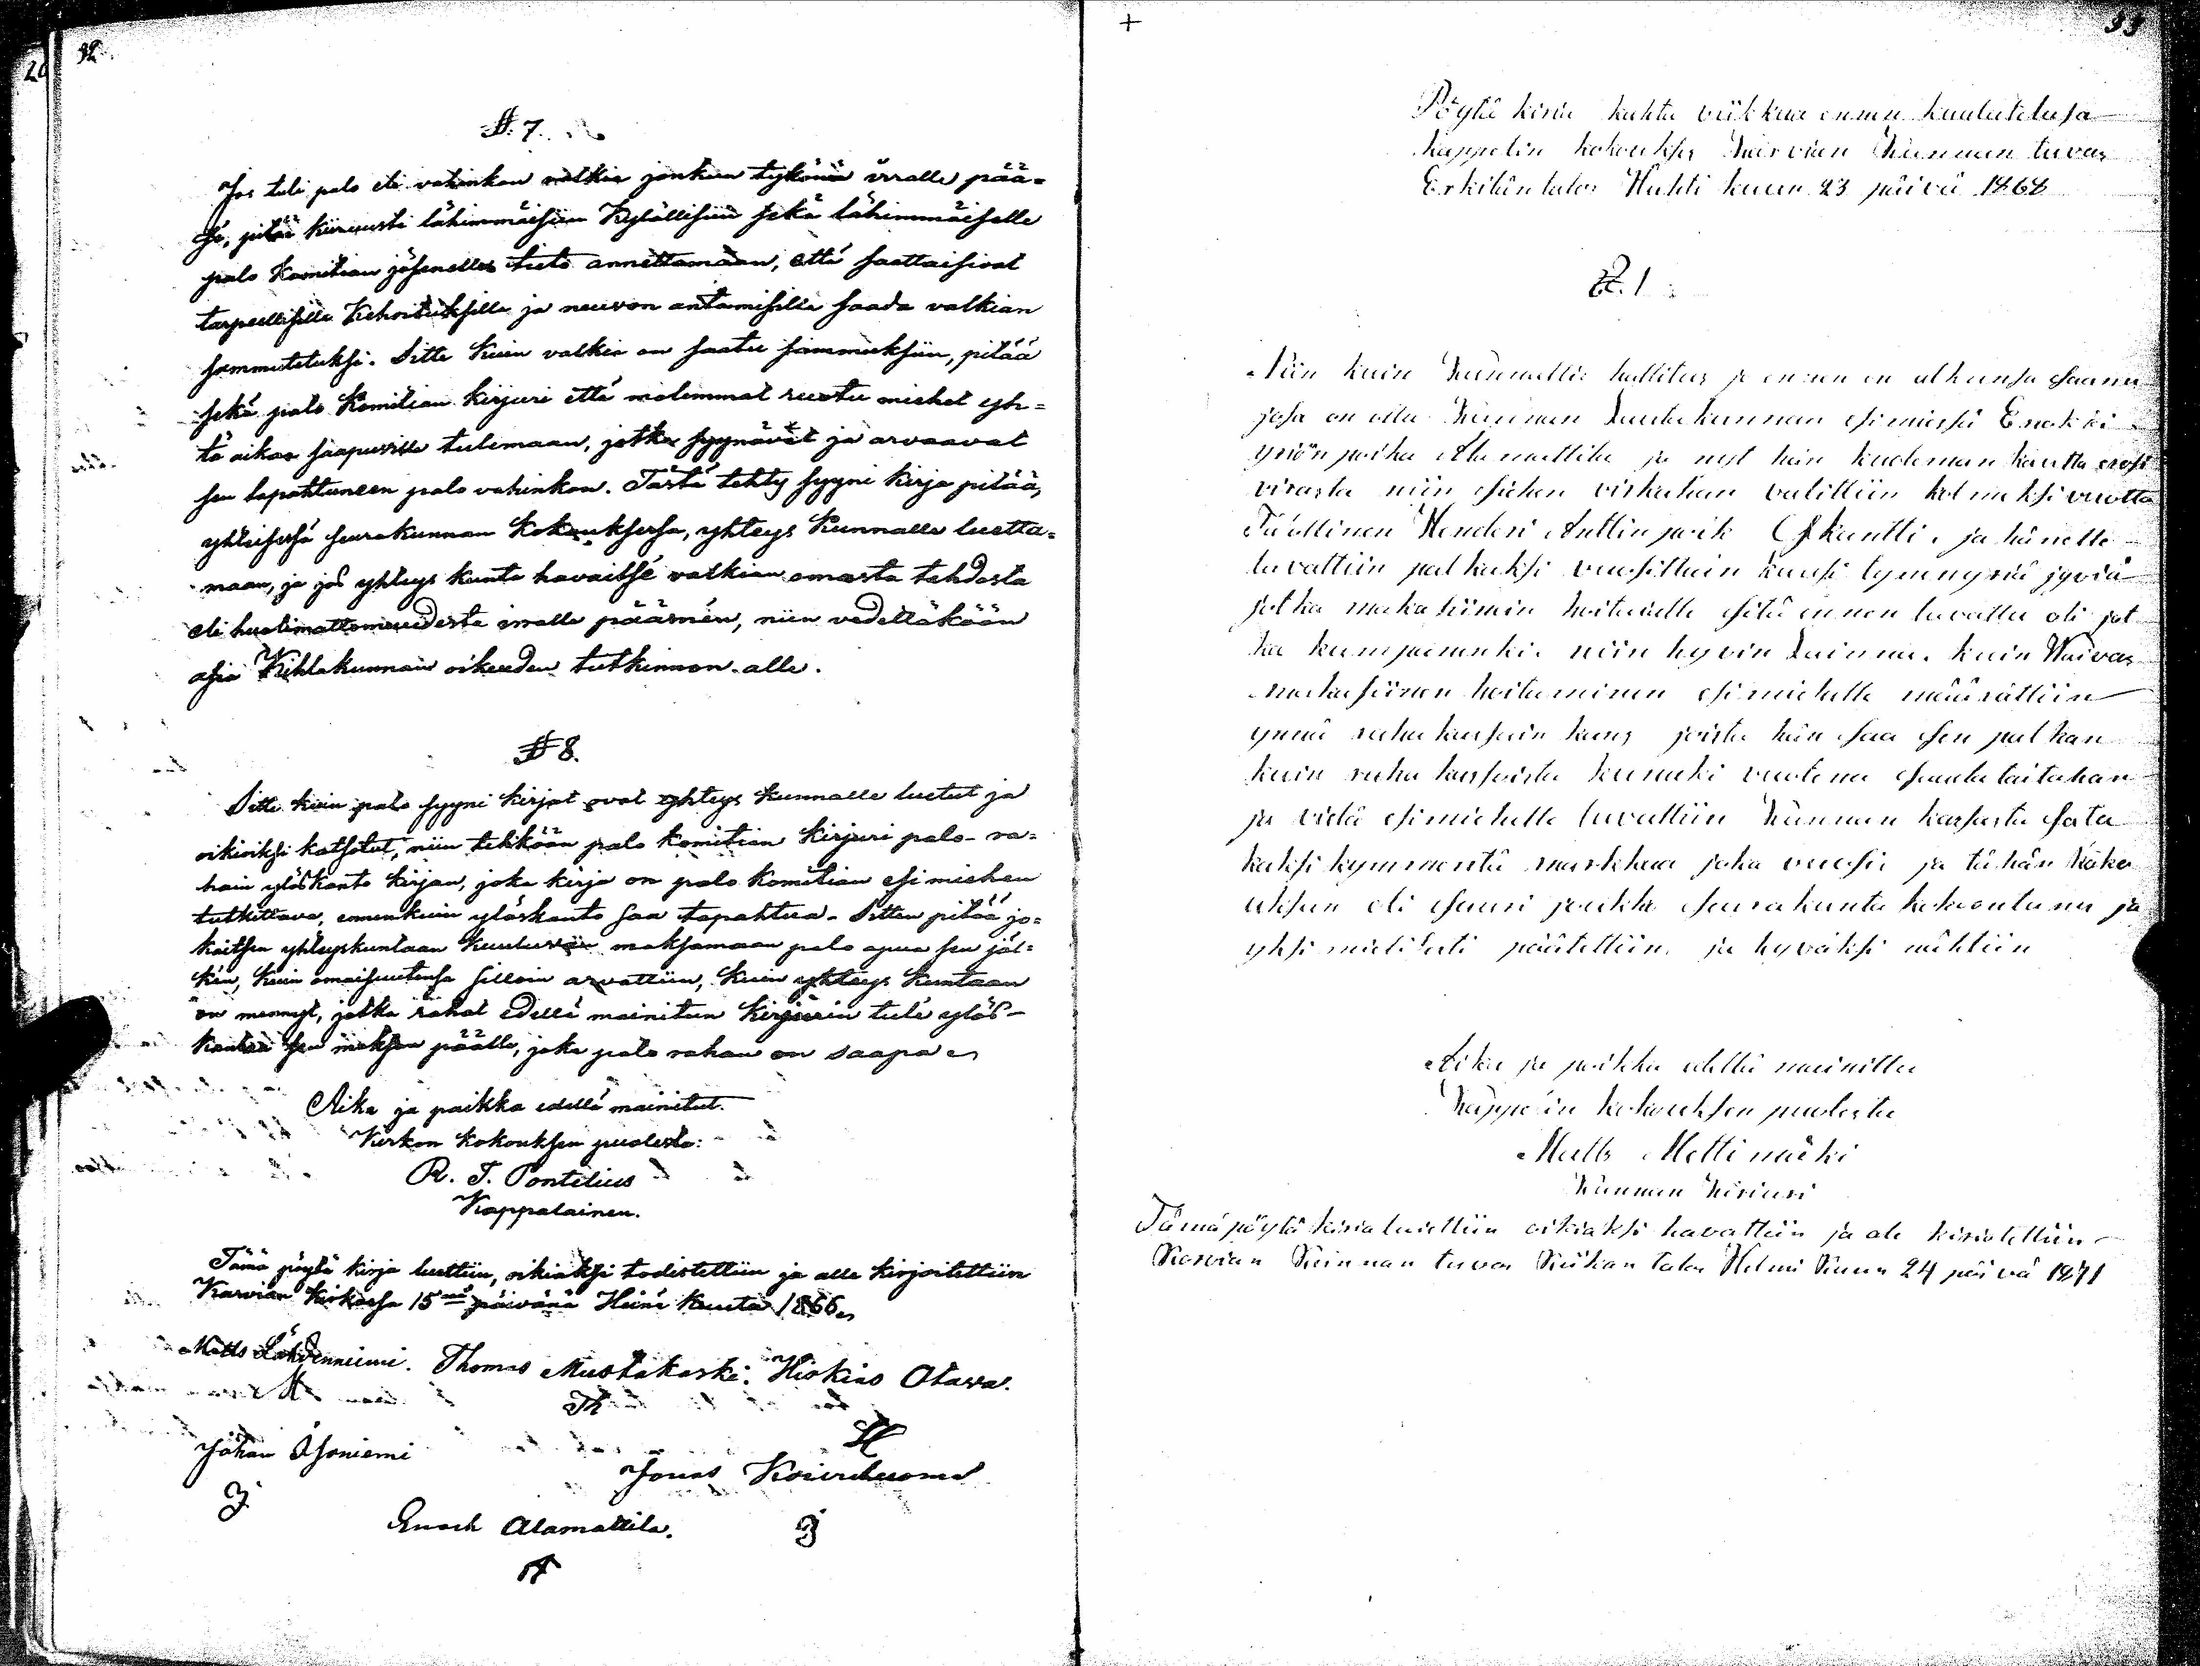 32
§. 7.
Jos tuli palo eli vahinkon valkia jonkun tykönä irralle pää-
se, pitää kiiruusti lähimmäisiin kylällisiin sekä lähimmäiselle
palo komitian jäsenelle tieto annettamaan, että saattaisivat
tarpeellisilla kehoituksilla ja neuvon antamisilla saada valkian
sammutetuksi. Sitte kuin valkia on saatu sammuksiin, pitää
sekä palo komitian kirjuri että molemmat ruotu miehet yh-
tä aikaa saapuvilla tulemaan, jotka syynäävät ja arvaavat
sen tapahtuneen palo vahinkon. Tästä tehty syyni kirja pitää,
yhteisessä seurakunnan kokouksessa, yhteys kunnalle luetta-
maan, ja jos yhteys kunta havaitsé valkian omasta tahdosta
eli huolimattomuudesta irralle päässén, niin vedettäköön
asia Kihlakunnan oikeuden tutkinnon alle.
§ 8.
Sitte kuin palo syyni kirjat ovat yhteys kunnalle luetut ja
oikioiksi katsotut, niin tehköön palo komitian kirjuri palo-ra-
hain ylöskanto kirjan, joka kirja on palo komitian esimiehen
tutkittava, ennenkuin ylöskanto saa tapahtua. Sitten pitää jo-
kaitsen yhteyskuntaan kuuluvan maksamaan palo apua sen jäl-
kén, kuin omaisuutensa silloin arvattiin, kuin yhteys kuntaan
on mennyt, jotka rahat edellä mainitun kirjurin tulé ylös-
kantaa sen maksun päälle, joka palo rahan on saapa
Aika ja paikka edellä mainitut.
Kirkon kokouksen puolesta:
R. J. Pontelius
Kappalainen.
Tämä pöytä kirja luettiin, oikiaksi todistettiin ja alle kirjoitettiin
Karvian kirkossa 15nä päivänä Heinä kuuta 1866
Matts Lähdenniemi. Thomas Mustakoski. Hiskias Otava.
M
Th
H
Johan Isoniemi
Jonas Koivuluoma
J
Enoch Alamattila.
J
A
33
Pöytä kiria kahta viikkua ennen kuulutetusa
kappelin kokoukses Karvian kunnan tuvas
Erkilän talos Huhti kuun 23 päivä 1868
§. 1
Niin kuin kunnallis hallitus jo ennen on alkunsa saanu
josa on ollu kunnan lautakunnan esimiessä Enokki
Yriön poika Ala mattila ja nyt hän kuoleman kautta erosi
virasta niin siihen virkahan valittiin kolmeksi vuotta
Talollinen Henderi Anttin poik Skantti, ja hänelle
luvattiin palkaksi vuosittain kuusi tynnyriä jyviä
jotka makasiinin hoitaialle sitä ennen luvattu oli jot
ka kumpainenki niin hyvin Laina kuin Waivas
makasiinen hoitaminen esimiehelle määrättiin
ynnä raha kassain kans joista hän saa sen palkan
kuin raha kassoista kunaki vuotena saada taitahan
ja vielä esimiehelle luvattiin kunnan kassasta sata
kaksi kymmentä markkaa joka vuosi, ja tähän koko
uksen oli suuri joukko seurakunta kokoontunu ja
yksi mielisesti päätettiin, ja hyväksi nähtiin
Aika ja paikka edellä mainittu
Kappelin kokouksen puolesta
Matts Mattimäki
Kunnan Kiriuri
Tämä pöytä kiria luiettiin oikiaksi havattiin ja ale kirioitettiin
Karvian Kunnan tuvas Kiikan talos Helmi Kuun 24 päivä 1871